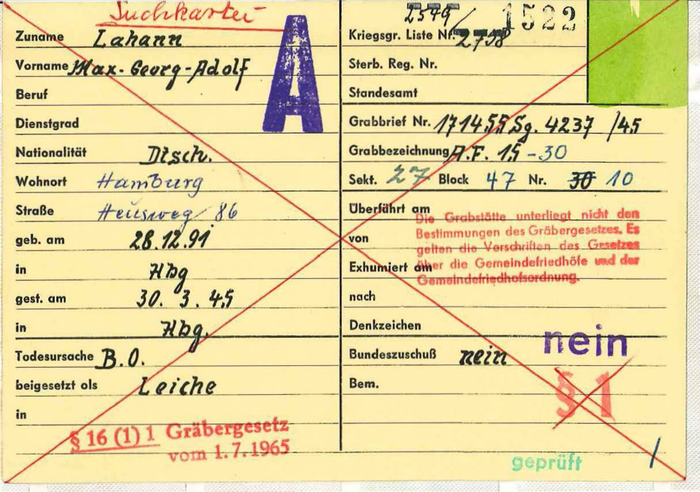 Suchkartei
Zuname Lahann
Vorname Max-Georg-Adolf
Beruf
Dienstgrad
Nationalität Dtsch.
Wohnort Hamburg
Straße Heusweg 86
geb. am 28.12.91
in Hbg
gest. am 30. 3. 45
in Hbg.
Todesursache B.O.
beigesetzt als Leiche
in
§ 16 (1) 1 Gräbergesetz
vom 1. 7. 1965
A
2549/ 1522
Kriegsgr. Liste Nr. 2718
Sterb. Reg. Nr.
Standesamt
Grabbrief Nr. 171455 Sg. 4237 /45
Grabbezeichnung A.F. 15-30
Sekt. 27 Block 47 Nr. 30 10
Überführt am
von
Exhumiert am
nach
Die Grabstätte unterliegt nicht den
Bestimmungen des Gräbergesetzes. Es
gelten die Vorschriften des Gesetzes
über die Gemeindefriedhöfe und der
Gemeindefriedhofsordnung.
Denkzeichen
nein
Bundeszuschuß nein
Bem.
§ 1
geprüft